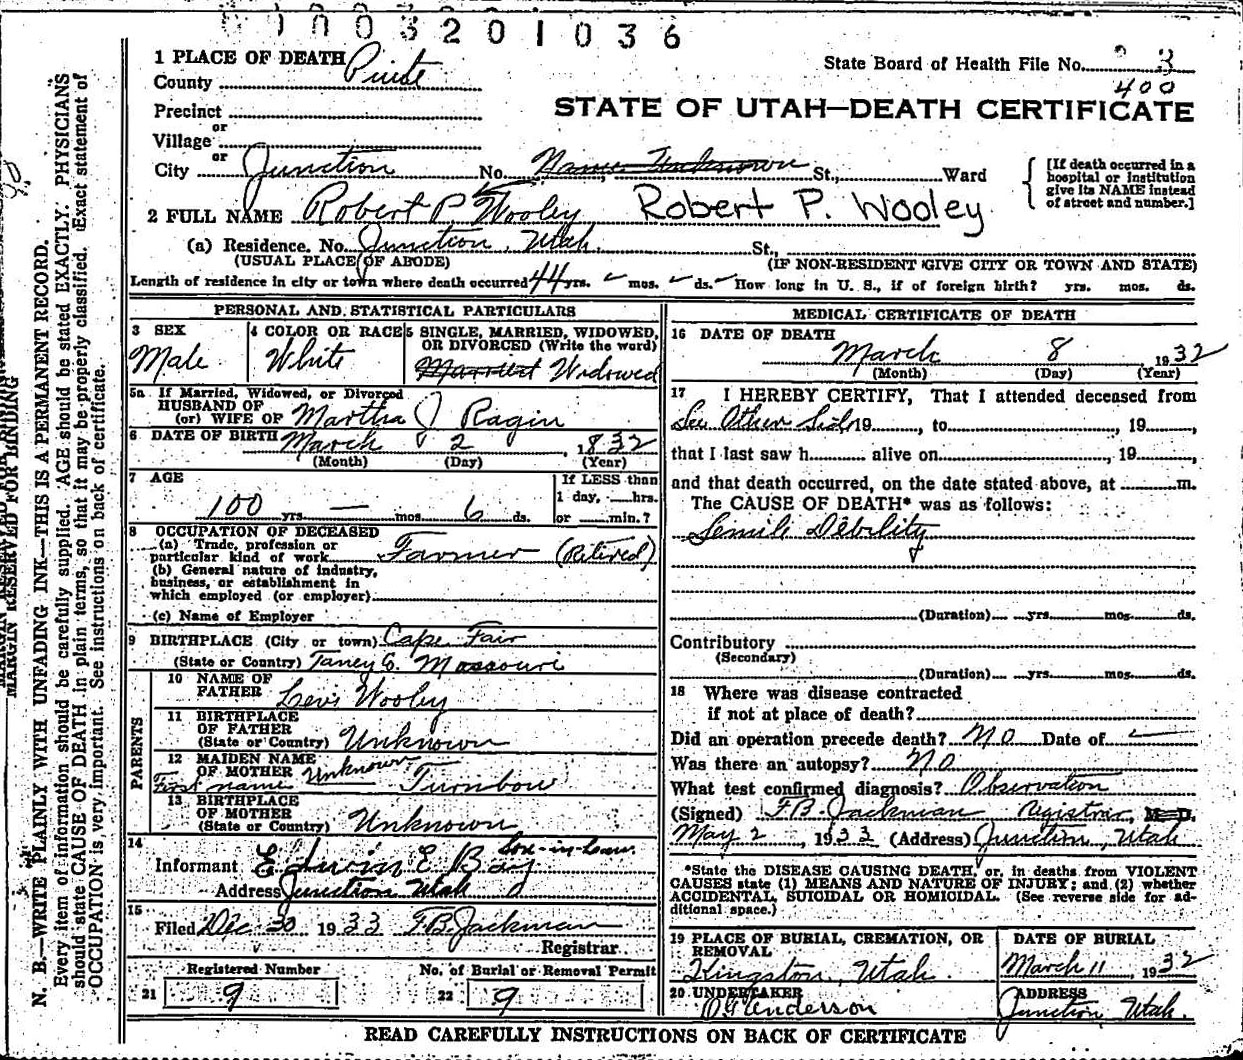 0003201036
1 PLACE OF DEATH
County Piute
State Board of Health File No. 3
400
Precinct
STATE OF UTAH—DEATH CERTIFICATE
or
Village
or
City Junction No. Name Unknown St., Ward
[If death occurred in a hospital or institution give its NAME instead of street and number.]
2 FULL NAME Robert P. Wooley Robert P. Wooley
(a) Residence. No. Junction, Utah. St.,
(USUAL PLACE OF ABODE) (IF NON-RESIDENT GIVE CITY OR TOWN AND STATE)
Length of residence in city or town where death occurred 44 yrs. – mos. – ds. – How long in U. S., if of foreign birth? yrs. mos. ds.
PERSONAL AND STATISTICAL PARTICULARS
3 SEX
Male
4 COLOR OR RACE
White
5 SINGLE, MARRIED, WIDOWED, OR DIVORCED (Write the word)
Married Widowed
5a If Married, Widowed, or Divorced
HUSBAND OF
(or) WIFE OF Martha J Ragin
6 DATE OF BIRTH March 2, 1832
(Month) (Day) (Year)
7 AGE
100 yrs. — mos. 6 ds.
If LESS than
1 day, hrs.
or min.?
8 OCCUPATION OF DECEASED
(a) Trade, profession or
particular kind of work Farmer (Retired)
(b) General nature of industry,
business, or establishment in
which employed (or employer)
(c) Name of Employer
9 BIRTHPLACE (City or town) Cape Fair
(State or Country) Taney Co. Missouri
PARENTS
10 NAME OF
FATHER Levi Wooley
11 BIRTHPLACE
OF FATHER
(State or Country) Unknown
12 MAIDEN NAME
OF MOTHER Unknown Turnbow
First name
13 BIRTHPLACE
OF MOTHER
(State or Country) Unknown
14
Informant Edwin E. Bay Son-in-law
Address Junction Utah
15
Filed Dec 30 1933 F.B. Jackman
Registrar
Registered Number No. of Burial or Removal Permit
21 9 22 9
MEDICAL CERTIFICATE OF DEATH
16 DATE OF DEATH
March 8 1932
(Month) (Day) (Year)
17 I HEREBY CERTIFY, That I attended deceased from
See Other Side 19, to, 19
that I last saw h alive on, 19
and that death occurred, on the date stated above, at m.
The CAUSE OF DEATH* was as follows:
Senile Debility
(Duration) yrs. mos. ds.
Contributory
(Secondary)
(Duration) yrs. mos. ds.
18 Where was disease contracted
if not at place of death?
Did an operation precede death? No Date of –
Was there an autopsy? No
What test confirmed diagnosis? Observation
(Signed) F.B. Jackman Registrar, M. D.
May 2, 1933 (Address) Junction, Utah
*State the DISEASE CAUSING DEATH, or, in deaths from VIOLENT
CAUSES state (1) MEANS AND NATURE OF INJURY; and (2) whether
ACCIDENTAL, SUICIDAL OR HOMICIDAL. (See reverse side for ad-
ditional space.)
19 PLACE OF BURIAL, CREMATION, OR
REMOVAL
Kingston, Utah.
DATE OF BURIAL
March 11, 1932
20 UNDERTAKER
Anderson
ADDRESS
Junction, Utah.
READ CAREFULLY INSTRUCTIONS ON BACK OF CERTIFICATE
MARGIN RESERVED FOR BINDING
N. B.—WRITE PLAINLY WITH UNFADING INK—THIS IS A PERMANENT RECORD.
Every item of information should be carefully supplied. AGE should be stated EXACTLY. PHYSICIANS
should state CAUSE OF DEATH in plain terms, so that it may be properly classified. Exact statement of
OCCUPATION is very important. See instructions on back of certificate.